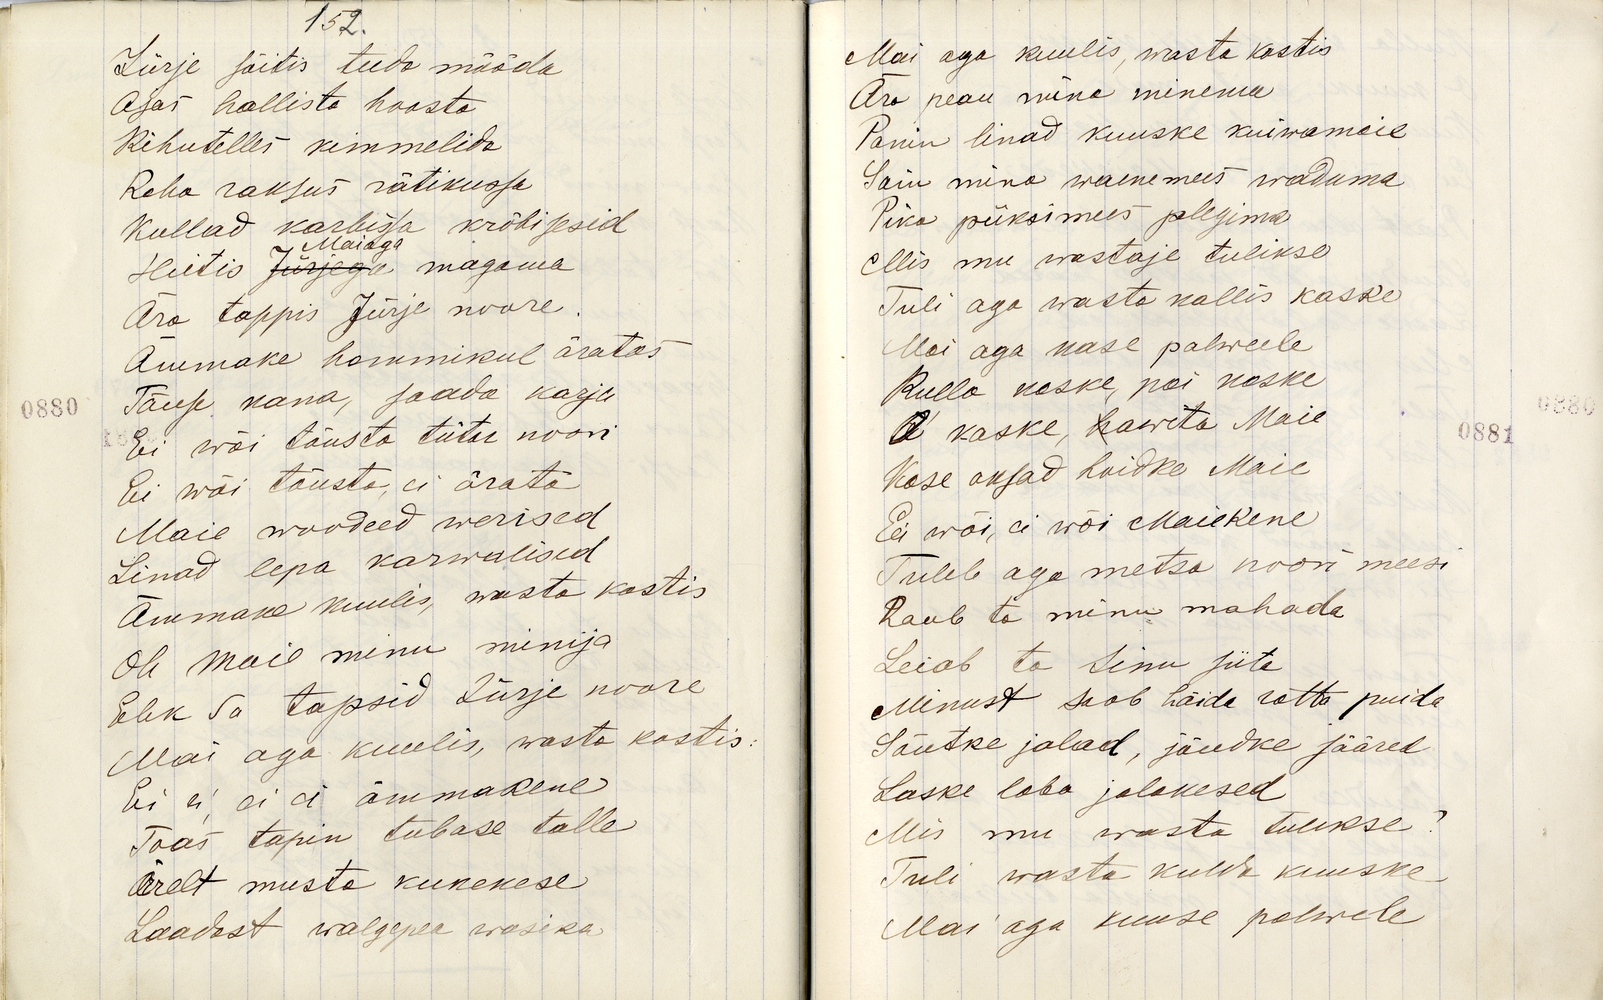 152.
Jürje sõitis teeda mööda
Ajas hallista hoosta
Kihutelles kimmelida
Raha raksus rätikussa
Kullad karbissa krõbisesid
Maiaga
Heitis Jürjega magama
Ära tappis Jürje noore.
Ämmake hommikul äratas
Tõuse, kana, saada karja
Ei wõi tõusta tütar noori
Ei wõi tõusta, ei ärata
Maie woodeed werised
Linad lepa karwalised
Ämmake kuulis, wasta kostis
Oh Maie minu minija
Ehk sa tapsid Jürje noore
Mai aga kuulis, wasta kostis:
Ei ei, ei ei ämmakene
Toas tapin tubase talle
Õrelt musta kukekese
Laadast walgepea wasika
0880
Mai aga kuulis, wasta kostis
Ära pean mina minema
Panin linad kuuske kuiwamaie
Sain mina waenemees waduma
Pika püksimees plegima
Mis mu wastaje tulikse
Tuli aga wasta kallis kaske
Mai aga kase palweele
Kulla kaske, pai kaske
O kaske, hawita Maie
Kase oksad hoidke Maie
Ei wõi, ei wõi Maiekene
Tuleb aga metsa noori meesi
Raub ta minu mahada
Leiab ta sinu siita
Minust saab häida ratta puida
Sõutke jalad, jõudke sääred
Laske laba jalakesed
Mis mu wasta tulekse?
Tuli wasta kulda kuuske
Mai aga kuuse palwele
0880
0881